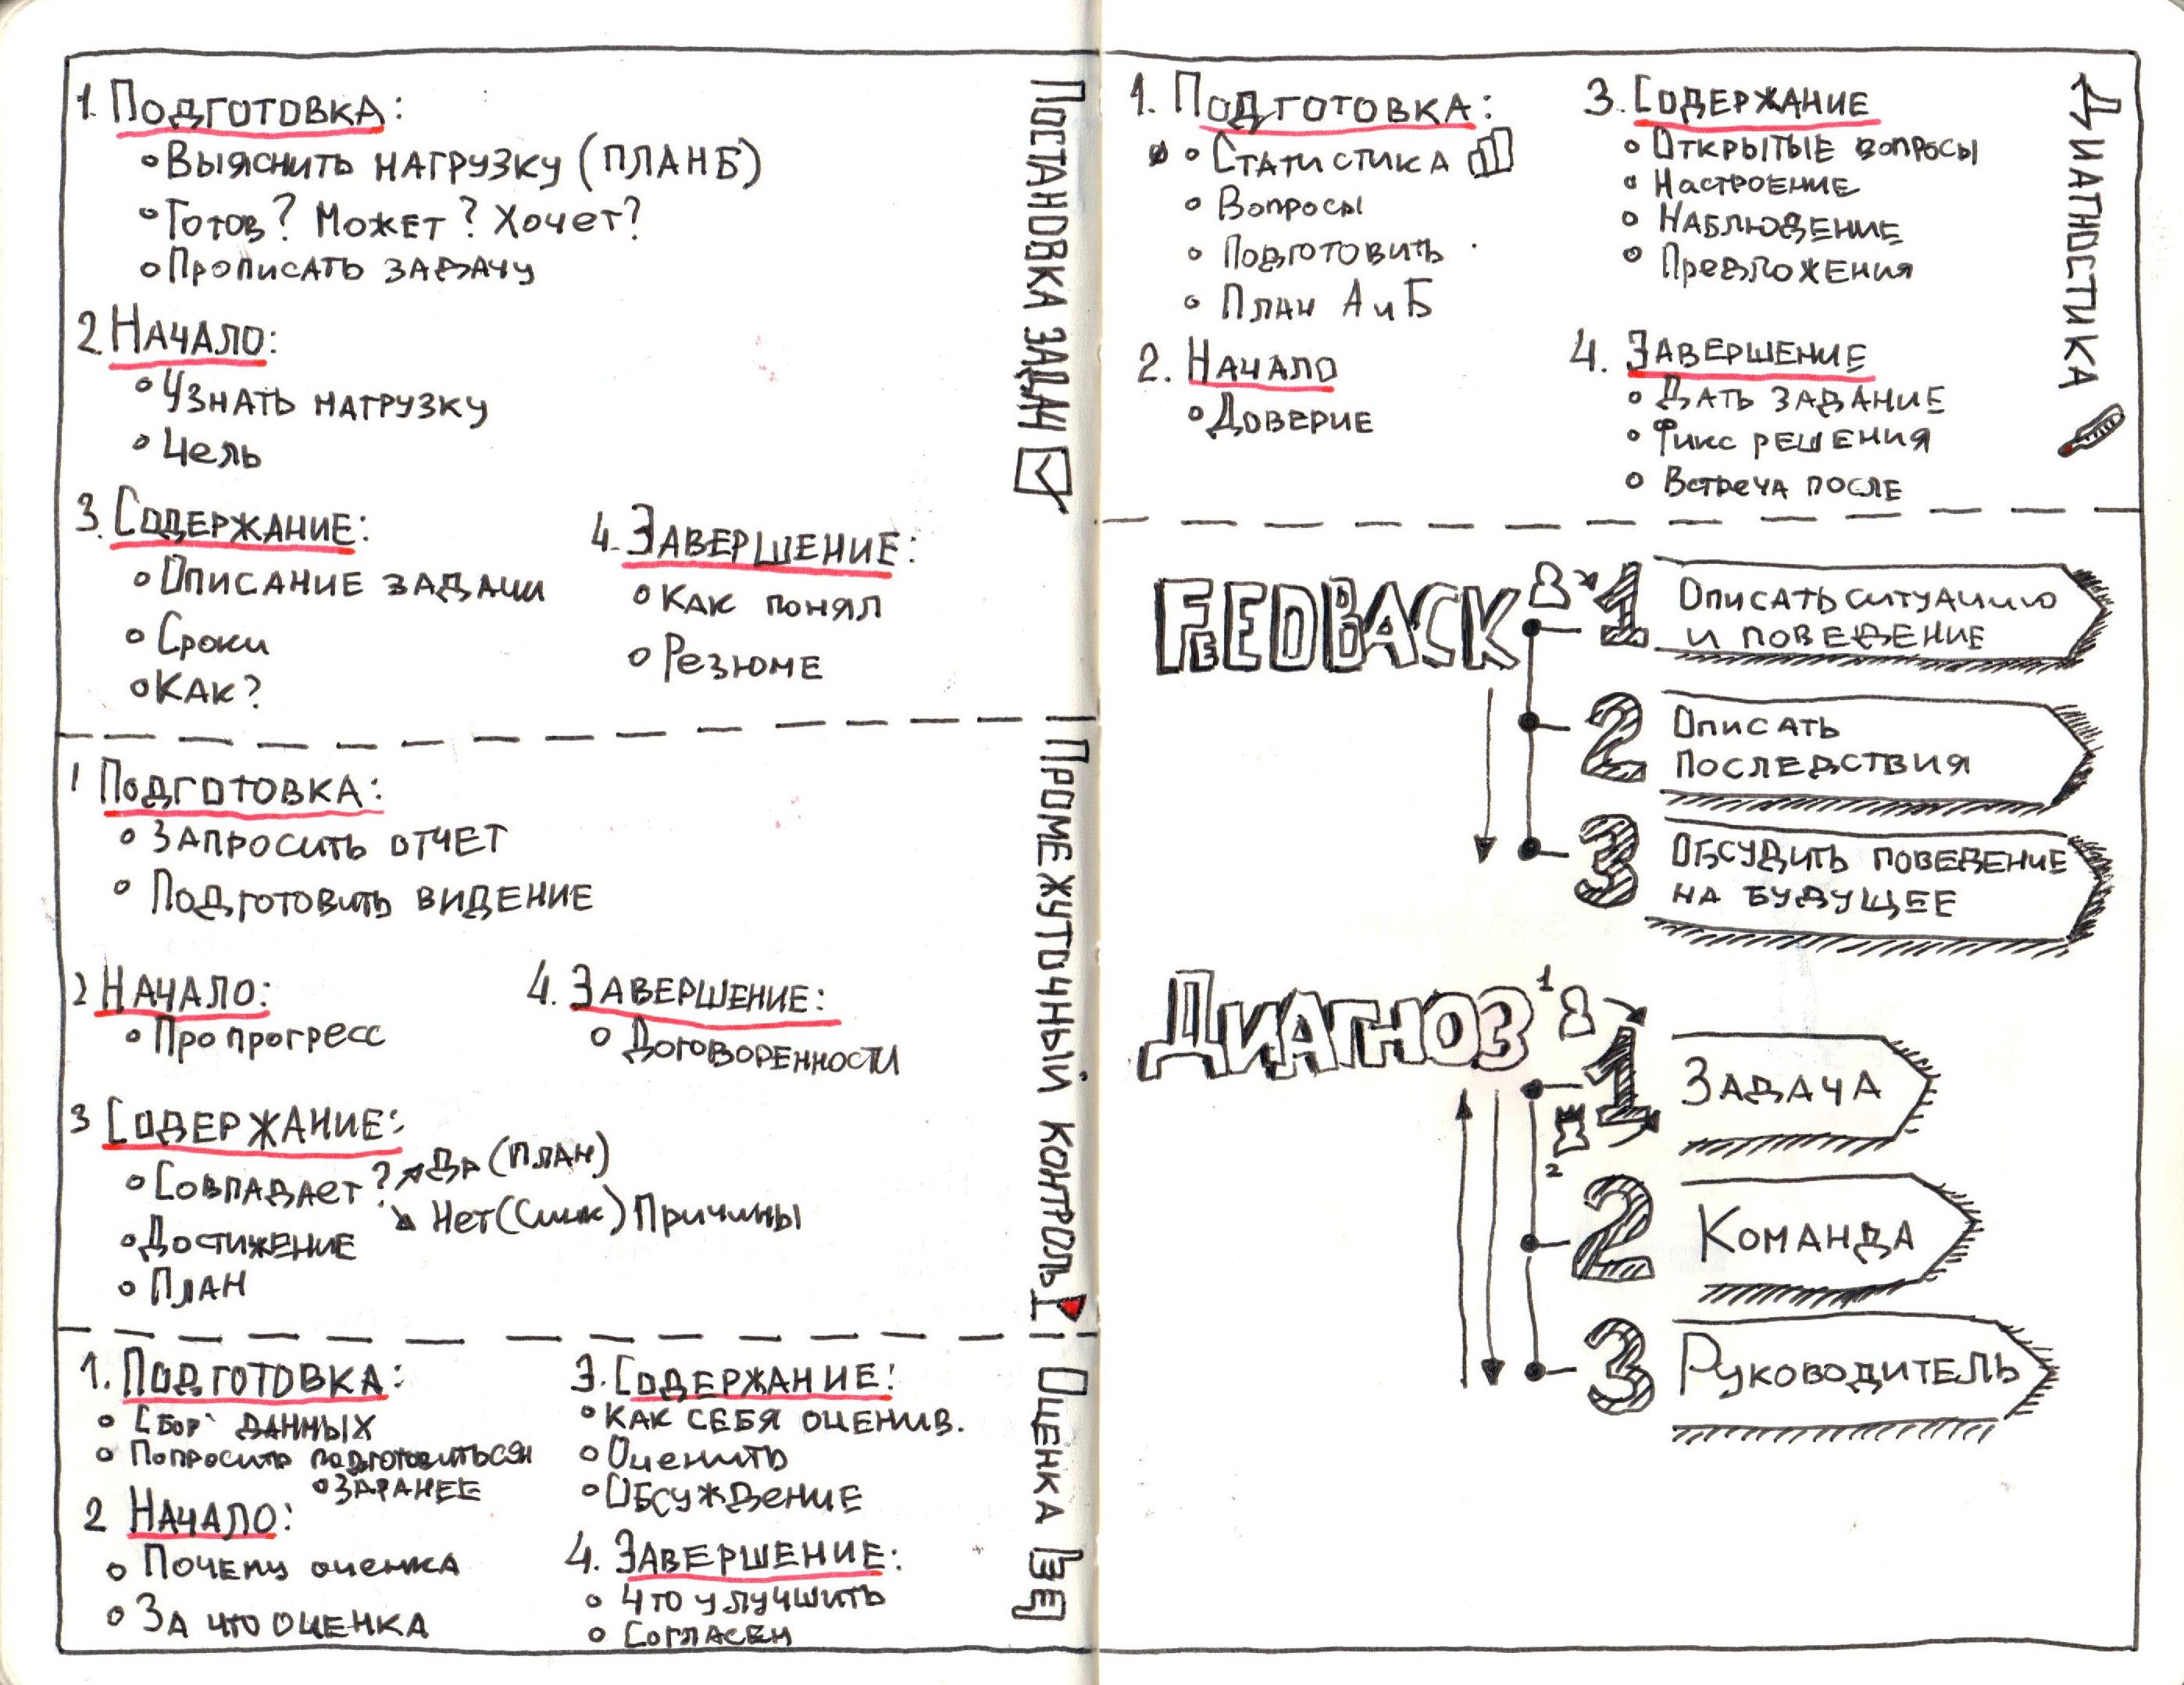 Постановка задач
1. Подготовка:
Выяснить нагрузку (план Б)
Готов? Может? Хочет?
Прописать задачу
2 Начало:
Узнать нагрузку
Цель
3. Содержание:
Описание задачи
Сроки
Как?
4. Завершение:
Как понял
Резюме
Промежуточный контроль
1 Подготовка:
Запросить отчет
Подготовить видение
2 Начало:
Про прогресс
3 Содержание:
Совпадает? Да (план)
Нет () Причины
Достижение
План
4. Завершение:
Договоренности
Оценка
1. Подготовка:
Сбор данных
Попросить подготовиться
заранее
2 Начало:
Почему оценка
За что оценка
3. Содержание:
Как себя оценив.
Оценить
Обсуждение
4. Завершение:
Что улучшить
Согласен
Диагностика
1. Подготовка:
Статистика
Вопросы
Подготовить
План А и Б
2. Начало
Доверие
3. Содержание
Открытые вопросы
Настроение
Наблюдение
Предложения
4. Завершение
Дать задание
Фикс решения
Встреча после
FEEDBACK
1 Описать ситуацию
и поведение
2 Описать
последствия
3 Обсудить поведение
на будущее
Диагноз
1
2
1 Задача
2 Команда
3 Руководитель